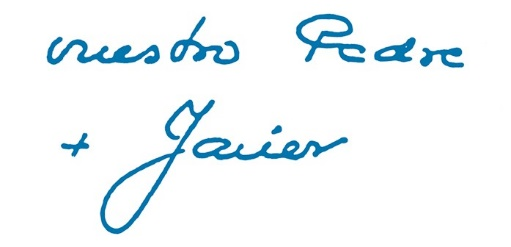 vuestro Padre
+ Javier